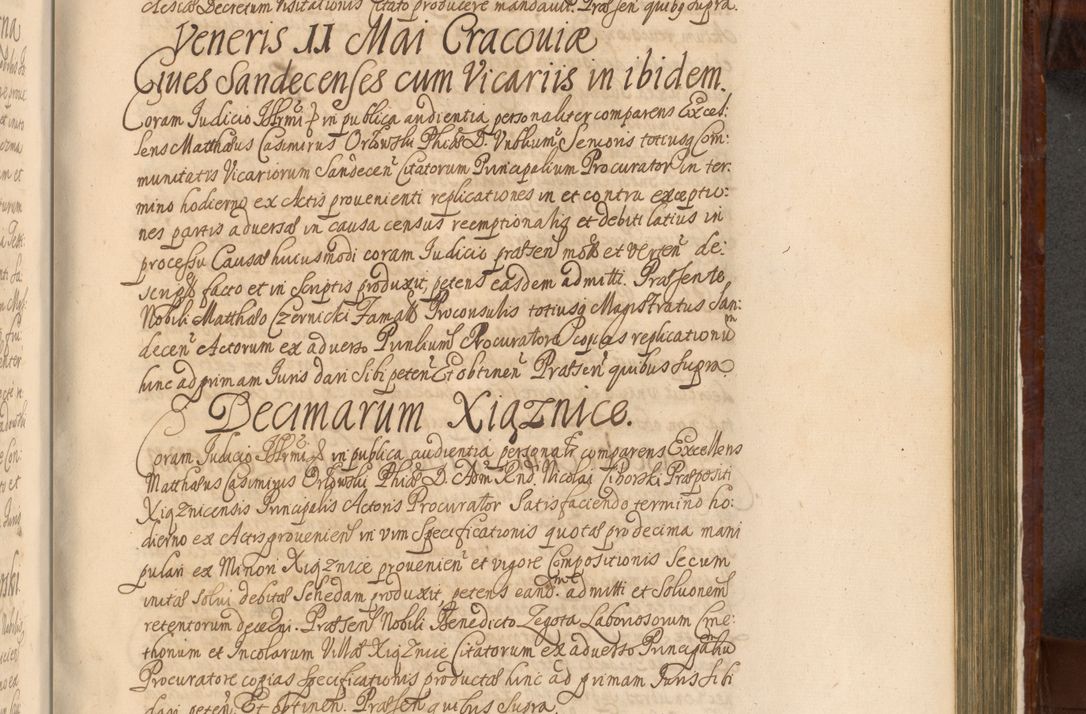 clesiæ Decretum Visitationis citato producere mandavit. Præsen quibq supra.
Veneris 11 Mai Cracoviæ
Cives Sandecenses cum Vicariis in ibidem.
Coram Judicio in publica audientia personaliter comparens Excel:
lens Matthæus Casimirus Orłowski Phiæ D. Senioris totiusq Com:
munitatis Vicariorum Sandecen Citatorum Principalium Procurator in ter:
mino hodierno ex Actis provenienti replicationes in et contra exceptio:
nes partis adversæ in causa census reemptionalis et debiti latius in
processu Causæ huiusmodi coram Judicio præsen et verten de:
facto et in scriptis produxit, petens easdem admitti. Præsente
Nobili Matthæo Czernicki Proconsulis totiusq Magistratus San:
decen Actorum ex adverso Procuratore copias replicationum
hinc ad primam Juris dari sibi peten Et obtinen Præsen quibus supra
Decimarum Xiąznice.
Coram Judicio in publica audientia comparens Excellens
Matthæus Casimirus Orłowski Phiæ D. Adm Rnd. Nicolai Ciborski Præpositi
Xiąznicensis Principalis Actoris Procurator Satisfaciendo termino ho:
dierno ex Actis provenien in vim Specificationis quotæ pro decima mani
pulari ex Minori Xiąznice provenien et vigore Compositionis secum
initæ solvi debitæ Schedam produxit, petens eand. admitti et
retentorum decerni. Præsen Nobili Benedicto Zegota Laboriosorum Cme:
thonum et Incolarum Villæ Xiąznice Citatorum ex adverso Principaliu
Procuratore copias specificationis productæ hinc ad primam Juris sibi
dari peten. Et obtinen. Præsen quibus supra.